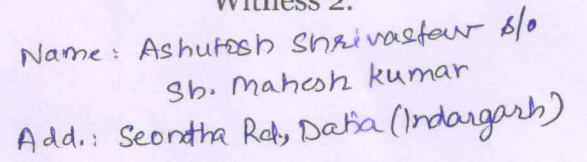 Witness 2:
Name: Ashutosh Shrivastav s/o
Sh. Mahesh kumar
Add.: Seondha Rd., Datia (Indargarh)